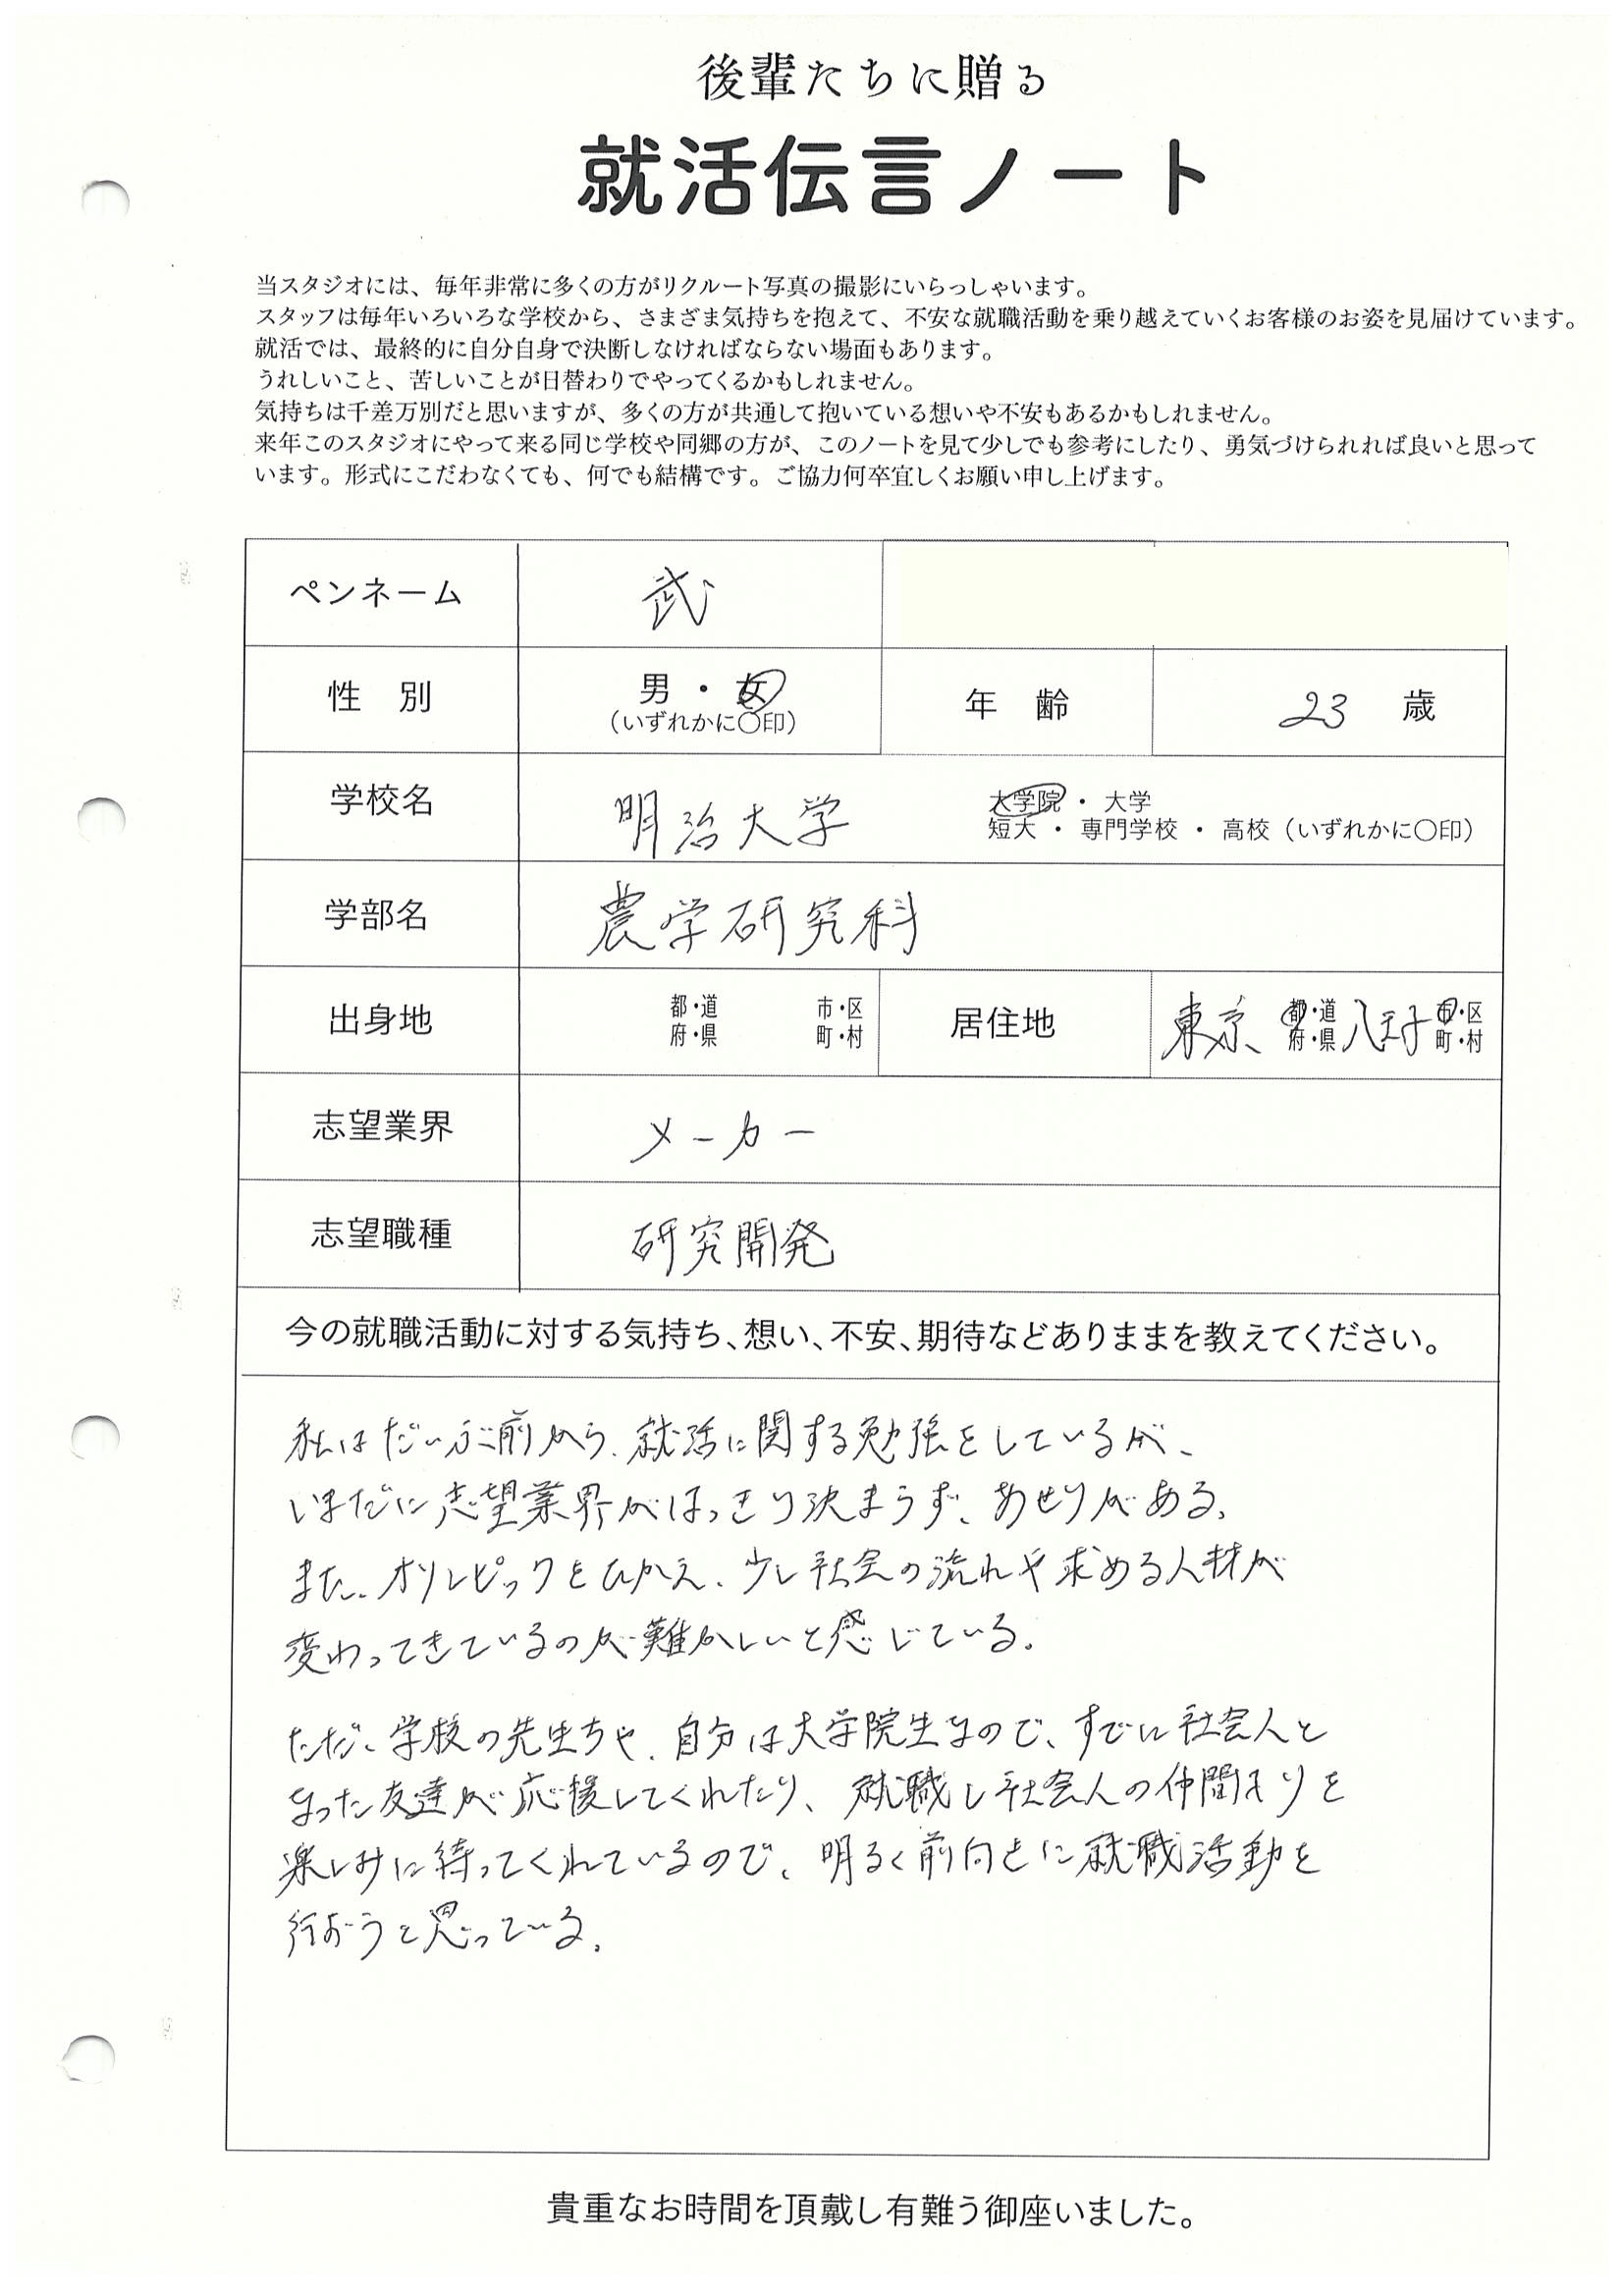 後輩たちに贈る
就活伝言ノート
当スタジオには、毎年非常に多くの方がリクルート写真の撮影にいらっしゃいます。
スタッフは毎年いろいろな学校から、さまざま気持ちを抱えて、不安な就職活動を乗り越えていくお客様のお姿を見届けています。
就活では、最終的に自分自身で決断しなければならない場面もあります。
うれしいこと、苦しいことが日替わりでやってくるかもしれません。
気持ちは千差万別だと思いますが、多くの方が共通して抱いている想いや不安もあるかもしれません。
来年このスタジオにやって来る同じ学校や同郷の方が、このノートを見て少しでも参考にしたり、勇気づけられれば良いと思って
います。形式にこだわなくても、何でも結構です。ご協力何卒宜しくお願い申し上げます。
ペンネーム 武
性 別 男・女 年 齢 23 歳
(いずれかに〇印)
学校名 明治大学 大学院・大学
短大・専門学校・高校(いずれかに〇印)
学部名 農学研究科
出身地 都・道 市・区 居住地 東京 都・道 八王子 市・区
府・県 町・村 府・県 町・村
志望業界 メーカー
志望職種 研究開発
今の就職活動に対する気持ち、想い、不安、期待などありままを教えてください。
私はだいぶ前から、就活に関する勉強をしているが、
いまだに志望業界がはっきり決まらず、あせりがある。
また、オリンピックをひかえ、少し社会の流れや求める人材が
変わってきているのが難かしいと感じている。
ただ、学校の先生方や、自分は大学院生なので、すでに社会人と
なった友達が応援してくれたり、就職し社会人の仲間入りを
楽しみに待ってくれているので、明るく前向きに就職活動を
行おうと思っている。
貴重なお時間を頂戴し有難う御座いました。